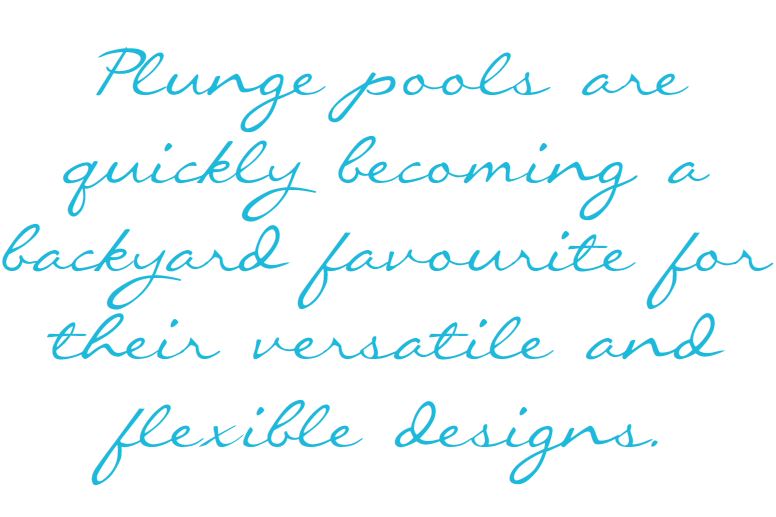 Plunge pools are
quickly becoming a
backyard favourite for
their versatile and
flexible designs.